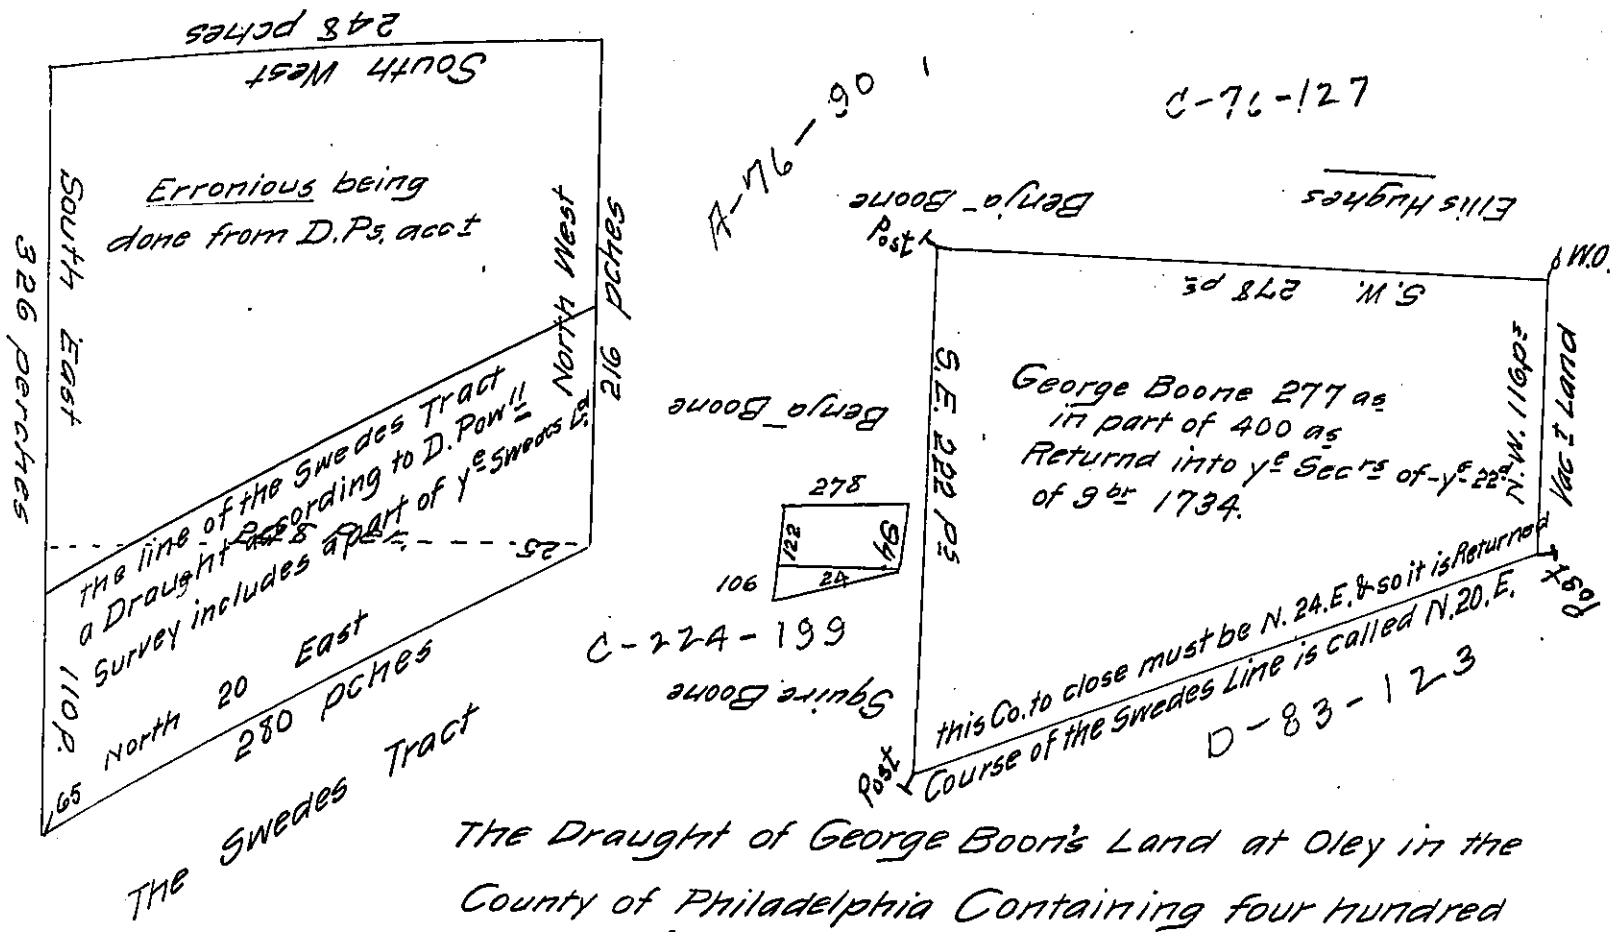 248 pches
South West
Erronious being
done from D.Ps. acct
South East
326 perches
North West
216 pches
The line of the Swedes Tract
a Draught according to D. Powll
Survey includes a part of ye Swedes Ld
25
110 p.
65
North 20 East
280 pches
The Swedes Tract
A-76-90
C-76-127
Benja Boone
Ellis Hughes
Post
W.O.
S.W. 278 ps
Benja Boone
S.E. 222 ps
George Boone 277 as
in part of 400 as
Returnd into ye Secrs of ye 22d
of 9br 1734.
N.W. 116 ps
Vact Land
278
122
94
24
106
C-224-199
Squire Boone
this Co. to close must be N. 24. E. & so it is Returned
Course of the Swedes Line is called N. 20. E.
Post
Post
D-83-123
The Draught of George Boon's Land at Oley in the
County of Philadelphia Containing four hundred